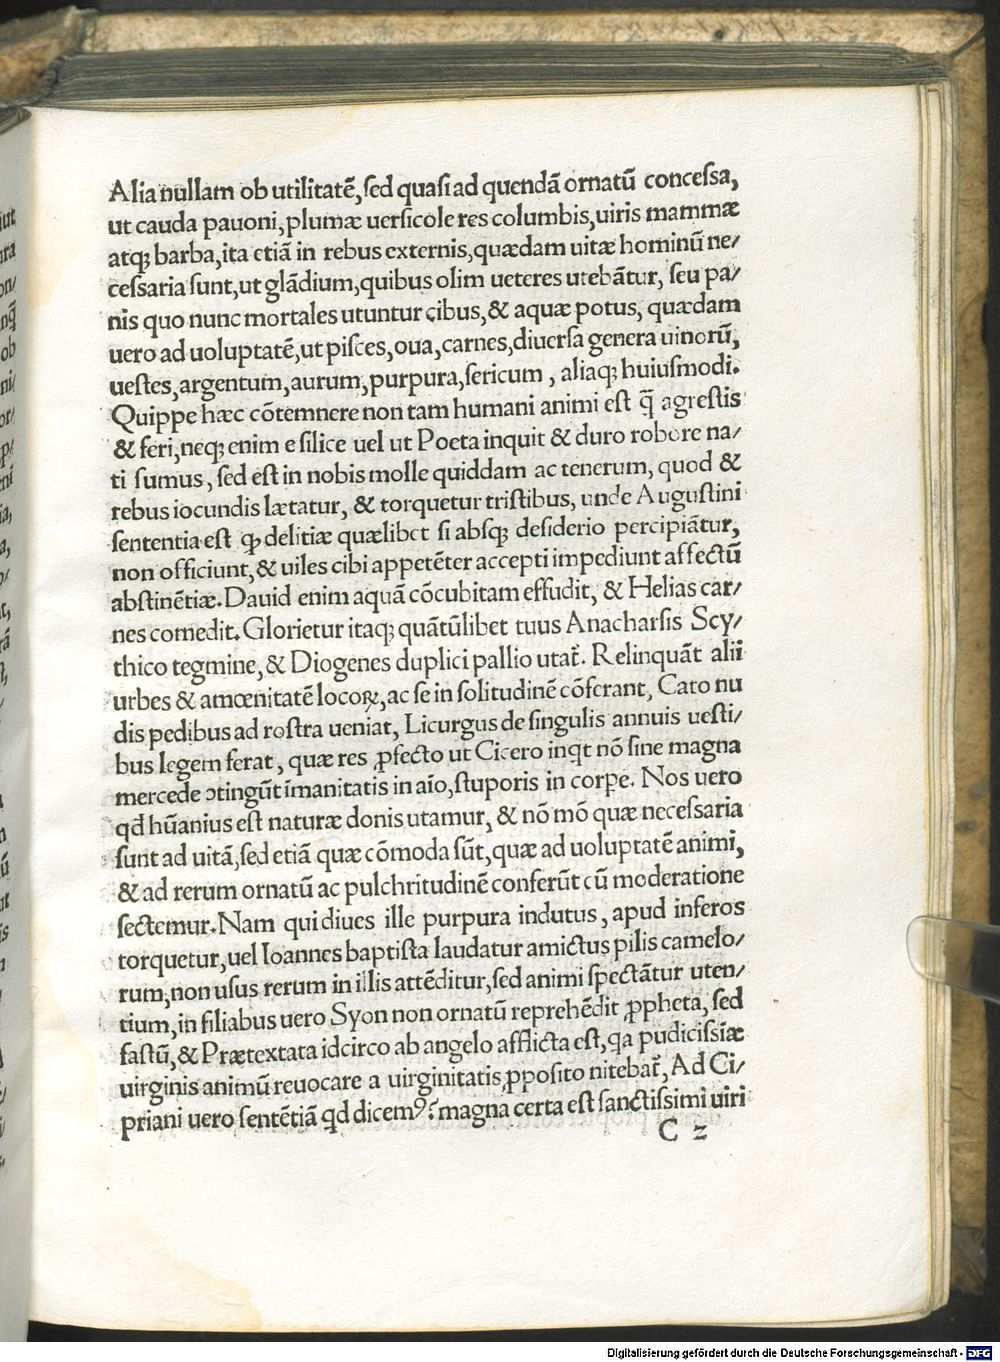 Alia nullam ob utilitatē, ſed quaſi ad quendā ornatū conceſſa,
ut cauda pauoni, plumæ uerſicolores columbis, uiris mammæ
atqꝫ barba, ita etiā in rebus externis, quædam uitæ hominū ne/
ceſſaria ſunt, ut glādium, quibus olim ueteres utebātur, ſeu pa/
nis quo nunc mortales utuntur cibus, & aquæ potus, quædam
uero ad uoluptatē, ut piſces, oua, carnes, diuerſa genera uinorū,
ueſtes, argentum, aurum, purpura, ſericum, aliaqꝫ huiuſmodi.
Quippe hæc cōtemnere non tam humani animi eſt q̄ agreſtis
& feri, neqꝫ enim e ſilice uel ut Poeta inquit & duro robore na/
ti ſumus, ſed eſt in nobis molle quiddam ac tenerum, quod &
rebus iocundis lætatur, & torquetur triſtibus, unde Auguſtini
ſententia eſt ꝙ delitiæ quælibet ſi abſqꝫ deſiderio percipiātur,
non officiunt, & uiles cibi appetēter accepti impediunt affectū
abſtinētiæ. Dauid enim aquā cōcubitam effudit, & Helias car/
nes comedit. Glorietur itaqꝫ quātūlibet tuus Anacharſis Scy/
thico tegmine, & Diogenes duplici pallio utat̄. Relinquāt alii
urbes & amœnitatē locoꝝ, ac ſe in ſolitudinē cōferant, Cato nu
dis pedibus ad roſtra ueniat, Licurgus de ſingulis annuis ueſti/
bus legem ferat, quæ res ꝓfecto ut Cicero inqt nō ſine magna
mercede ↄtingūt īmanitatis in aīo, ſtuporis in corꝑe. Nos uero
qd hūanius eſt naturæ donis utamur, & nō mō quæ neceſſaria
ſunt ad uitā, ſed etiā quæ cōmoda ſūt, quæ ad uoluptatē animi,
& ad rerum ornatū ac pulchritudinē conferūt cū moderatione
ſectemur. Nam qui diues ille purpura indutus, apud inferos
torquetur, uel Ioannes baptiſta laudatur amictus pilis camelo/
rum, non uſus rerum in illis attēditur, ſed animi ſpectātur uten/
tium, in filiabus uero Syon non ornatū reprehēdit ꝓpheta, ſed
faſtū, & Prætextata idcirco ab angelo afflicta eſt, qa pudiciſſiæ
uirginis animū reuocare a uirginitatis ꝓpoſito nitebat̄, Ad Ci/
priani uero ſentētiā qd dicemꝰ? magna certa eſt ſanctiſſimi uiri
C 2
Digitalisierung gefördert durch die Deutsche Forschungsgemeinschaft - DFG